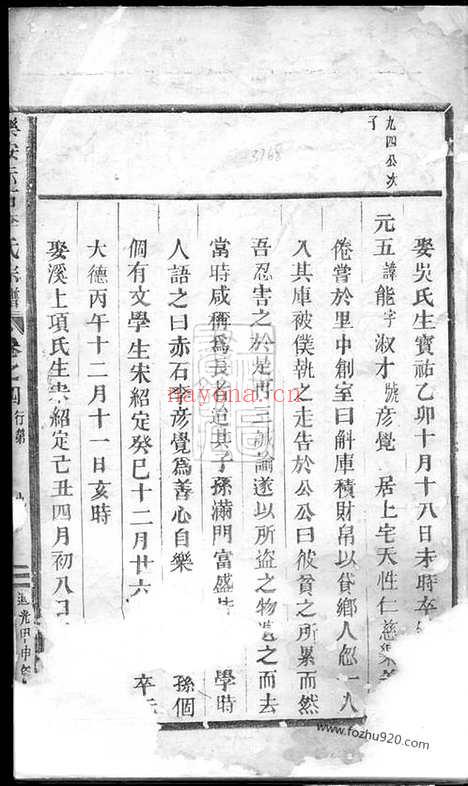 九四公次
子
3768
娶吳氏生寶祐乙卯十月十八日未時卒
元五諱能字淑才號彦覺 居上宅天性仁慈樂善
倦嘗於里中創室曰斛庫積財帛以貸鄉人忽一人
入其庫被僕執之走告於公公曰彼貧之所累而然
吾忍害之於是再三誡諭遂以所盜之物遺之而去
當時咸稱爲長者迨其子孫滿門富盛 學時
人語之曰赤石李彦覺爲善心自樂 孫個
個有文學生宋紹定癸巳十二月廿六 卒
大德丙午十二月十一日亥時
娶溪上項氏生宋紹定己丑四月初八日
氏宗譜 卷之四 行第
道光甲申
nayona.cn
www.fozhu920.com